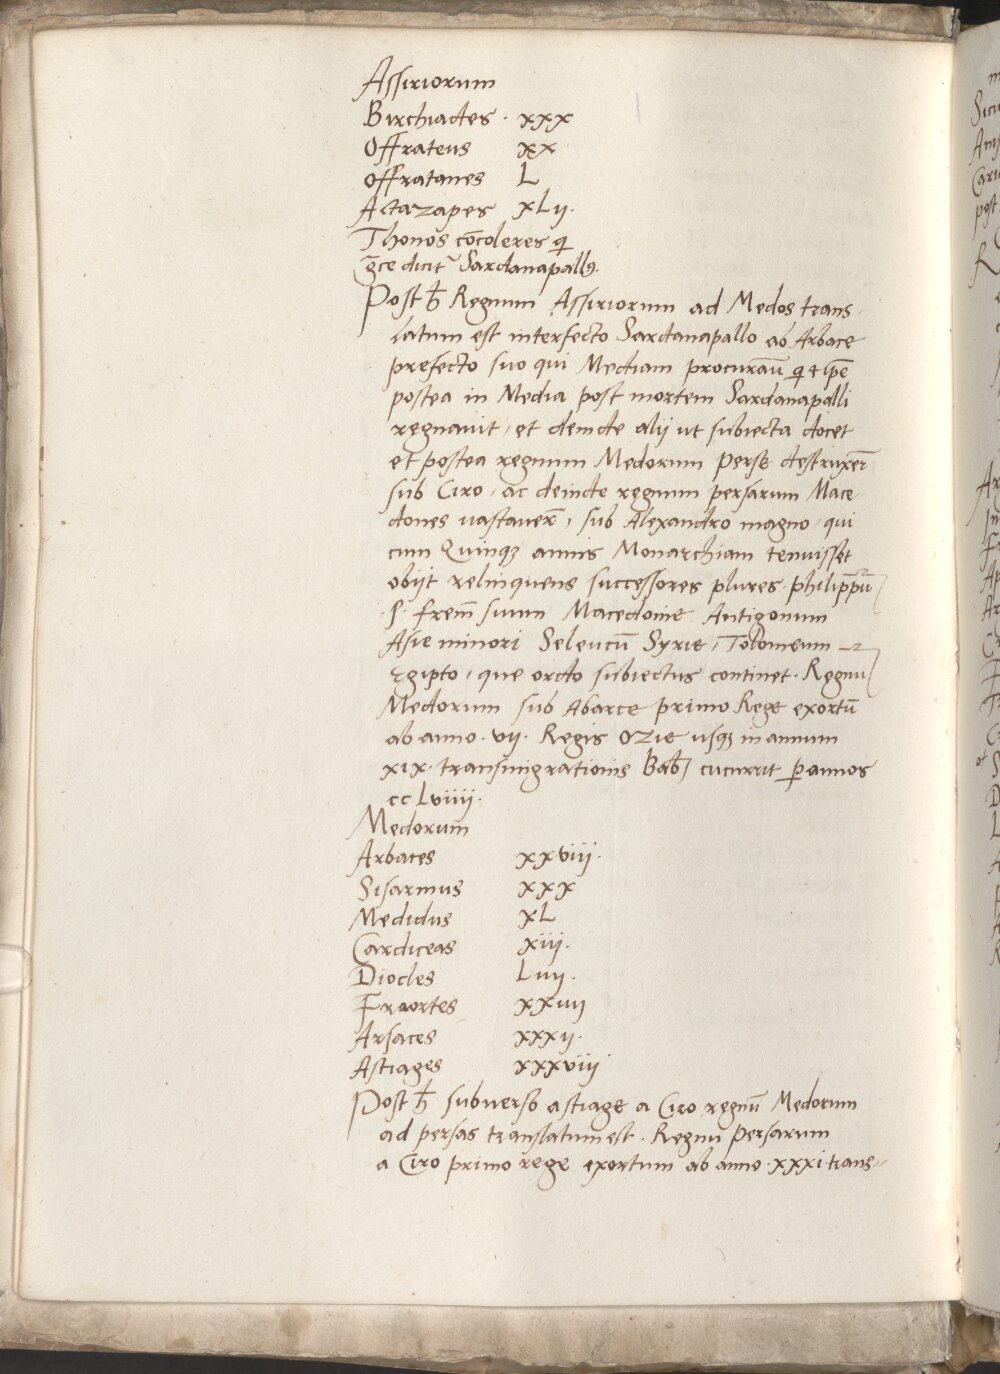 Assiriorum
Birchiactes · xxx
Offrateus xx
Offratanes L
Actazapes xLij·
Thonos cōcoleres q
gce dicit Sardanapallꝰ·
Post h̄ Regnum Assiriorum ad Medos trans
latum est interfecto Sardanapallo ab Arbace
prefecto suo qui Mediam procurāu q ⁊ ip̄e
postea in Media post mortem Sardanapalli
regnauit, et deinde alij ut subiecta docet
et postea regnum Medorum Perse destruxer̄
sub Ciro, ac deinde regnum persarum Mace
dones uastauer̄, sub Alexandro magno, qui
cum Quinqꝫ annis Monarchiam tenuisset
obijt relinquens successores plures· philip̄pū
·s· frem̄ suum Macedonie Antigonum
Asie minori Seleucū Syrie, Tolomeum
Egipto, que ordo subiectus continet· Regnu
Medorum sub Abarce primo Rege exortū
ab anno· vij· Regis Ozie usqꝫ in annum
xix· transmigrationis Bab̄ cucurrit ꝑ annos
cc Lviiii·
Medorum
Arbaces xxviij·
Sisarmus xxx
Medidus xL
Cardiceas xiij·
Diocles Liiij·
Fraortes xxiiij
Arsaces xxxij·
Astiages xxxviij
Post h̄ subuerso astiage a Ciro regnū Medorum
ad persas translatum est· Regnu Persarum
a Ciro primo rege exortum ab anno·xxxi·trans-